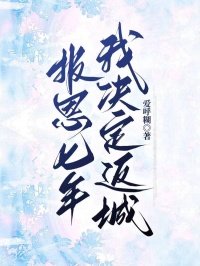 报恩七年
我决定返城
爱呼糊◎著